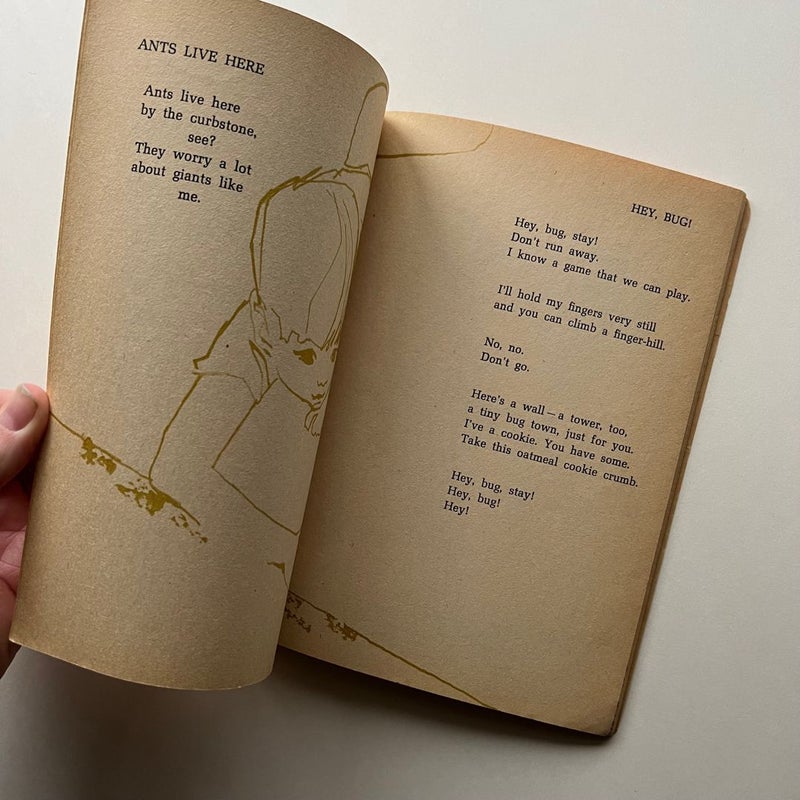 ANTS LIVE HERE
Ants live here
by the curbstone,
see?
They worry a lot
about giants like
me.
HEY, BUG!
Hey, bug, stay!
Don't run away.
I know a game that we can play.
I'll hold my fingers very still
and you can climb a finger-hill.
No, no.
Don't go.
Here's a wall — a tower, too,
a tiny bug town, just for you.
I've a cookie. You have some.
Take this oatmeal cookie crumb.
Hey, bug, stay!
Hey, bug!
Hey!